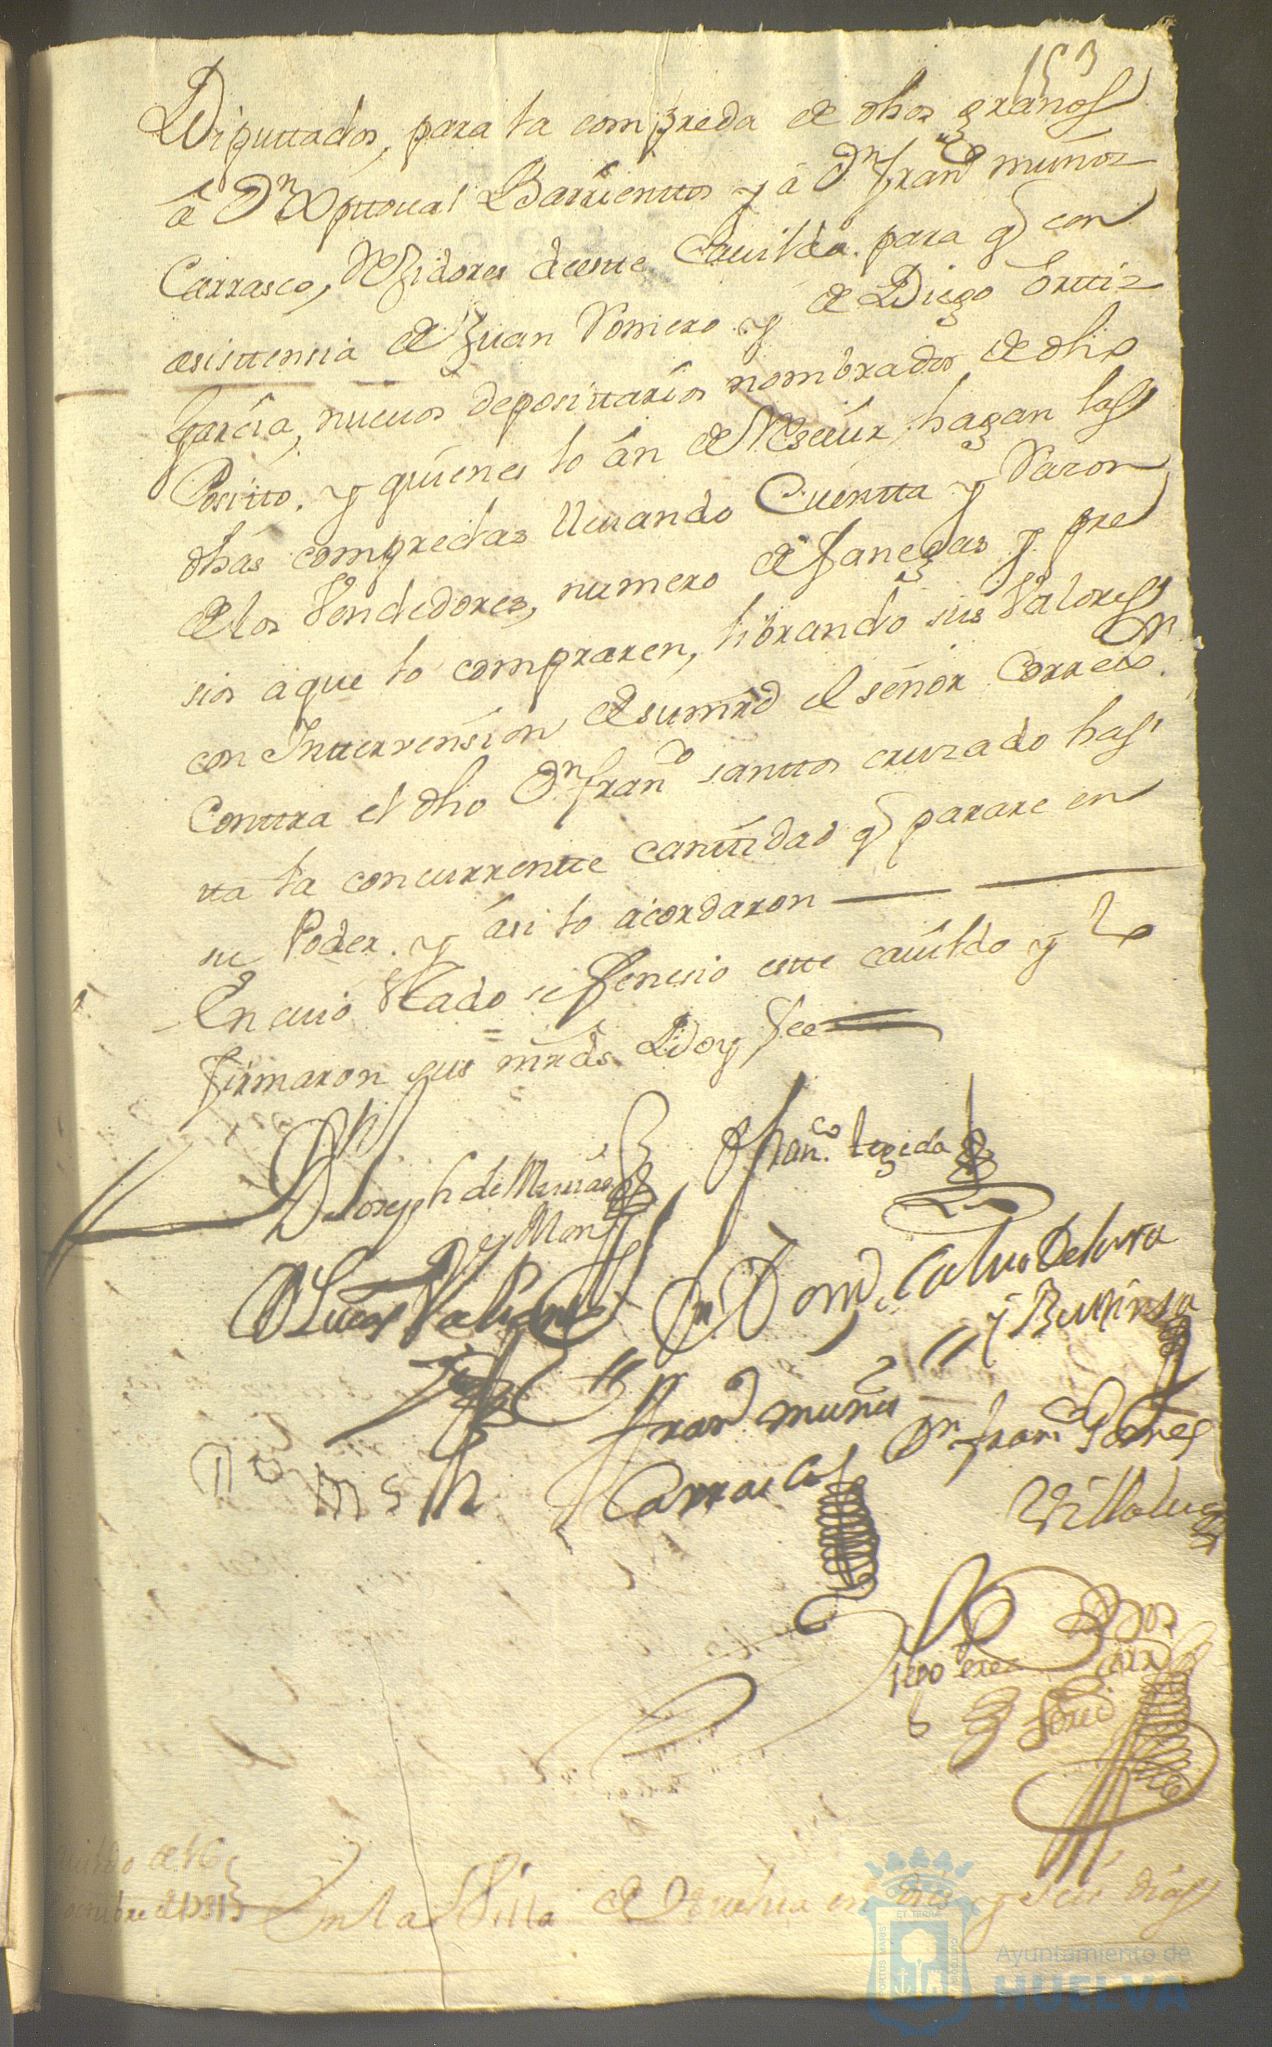 153
Diputtados, para la compreda de dhos granos
â Dn Xpttoual Barrienttos y â Dn Franco muñoz
Carrasco, Rexidores de este Cauildo. para q con
asisttensia de Juan Romero y de Diego orttiz
Garcia, nueuos deposittarios nombrados de dho
Posito. y quienes lo án de Resiuir, hagan las
dhas compredas lleuando Cuentta y Razon
de los Vendedores, numero de fanegas y pre
sios aque lo compraren, librando sus Valores
con Intterrension de su mrd el señor Corregor
Conttra el dho Dn Franco santtos cruzado has
tta la concurrentte canttidad q parare en
su Poder. y ási lo acordaron
En cuio estado se fenesio este cauildo y lo
firmaron sus mrds Doy fee
Dn Joseph de
y Mon
Franco texeda
D Lucas Valiente
Dn Domo Caluo de lara
y
Franco muñoz
Carrasco
Dn Franco Torres
Villalua
Diego Perez
En la Villa de Huelua en dies y seis dias
cauildo de 16
octubre de
PORTUS MARIS ET TERRAE CUSTODIA
Ayuntamiento de
HUELVA